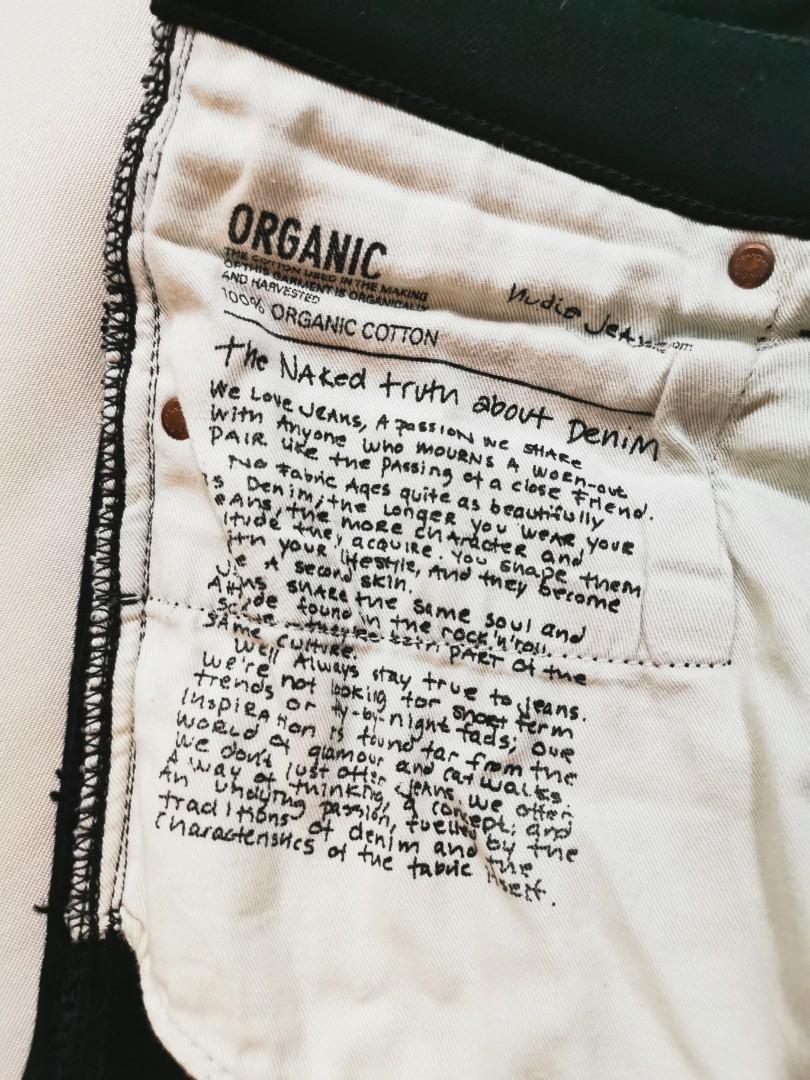 ORGANIC
THE COTTON USED IN THE MAKING
OF THIS GARMENT IS ORGANICALLY
AND HARVESTED
100% ORGANIC COTTON
Nudie Jeans.com
the NAKed truth about Denim
We Love JEANS, A PASSION WE SHARE
With Anyone Who MOURNS A WORN-out
PAIR LIKE the PASSING of a close Friend.
No Fabric Ages quite as beautifully
s Denim; the Longer you WEAR your
eans, the more character and
itude they acquire. You shape them
ith your lifestyle, And they become
A second skin.
share the same soul and
found in the rock'n'roll.
PART of the
SAME culture.
We'll Always stay true to jeans.
We're not looking for short term
trends or fly-by-night fads; our
Inspiration is found far from the
World of glamour and catwalks.
We don't just offer jeans, we offer
A way of thinking, a concept; and
An undying passion, fuelled by the
traditions of denim and the
Characteristics of the fabric itself.